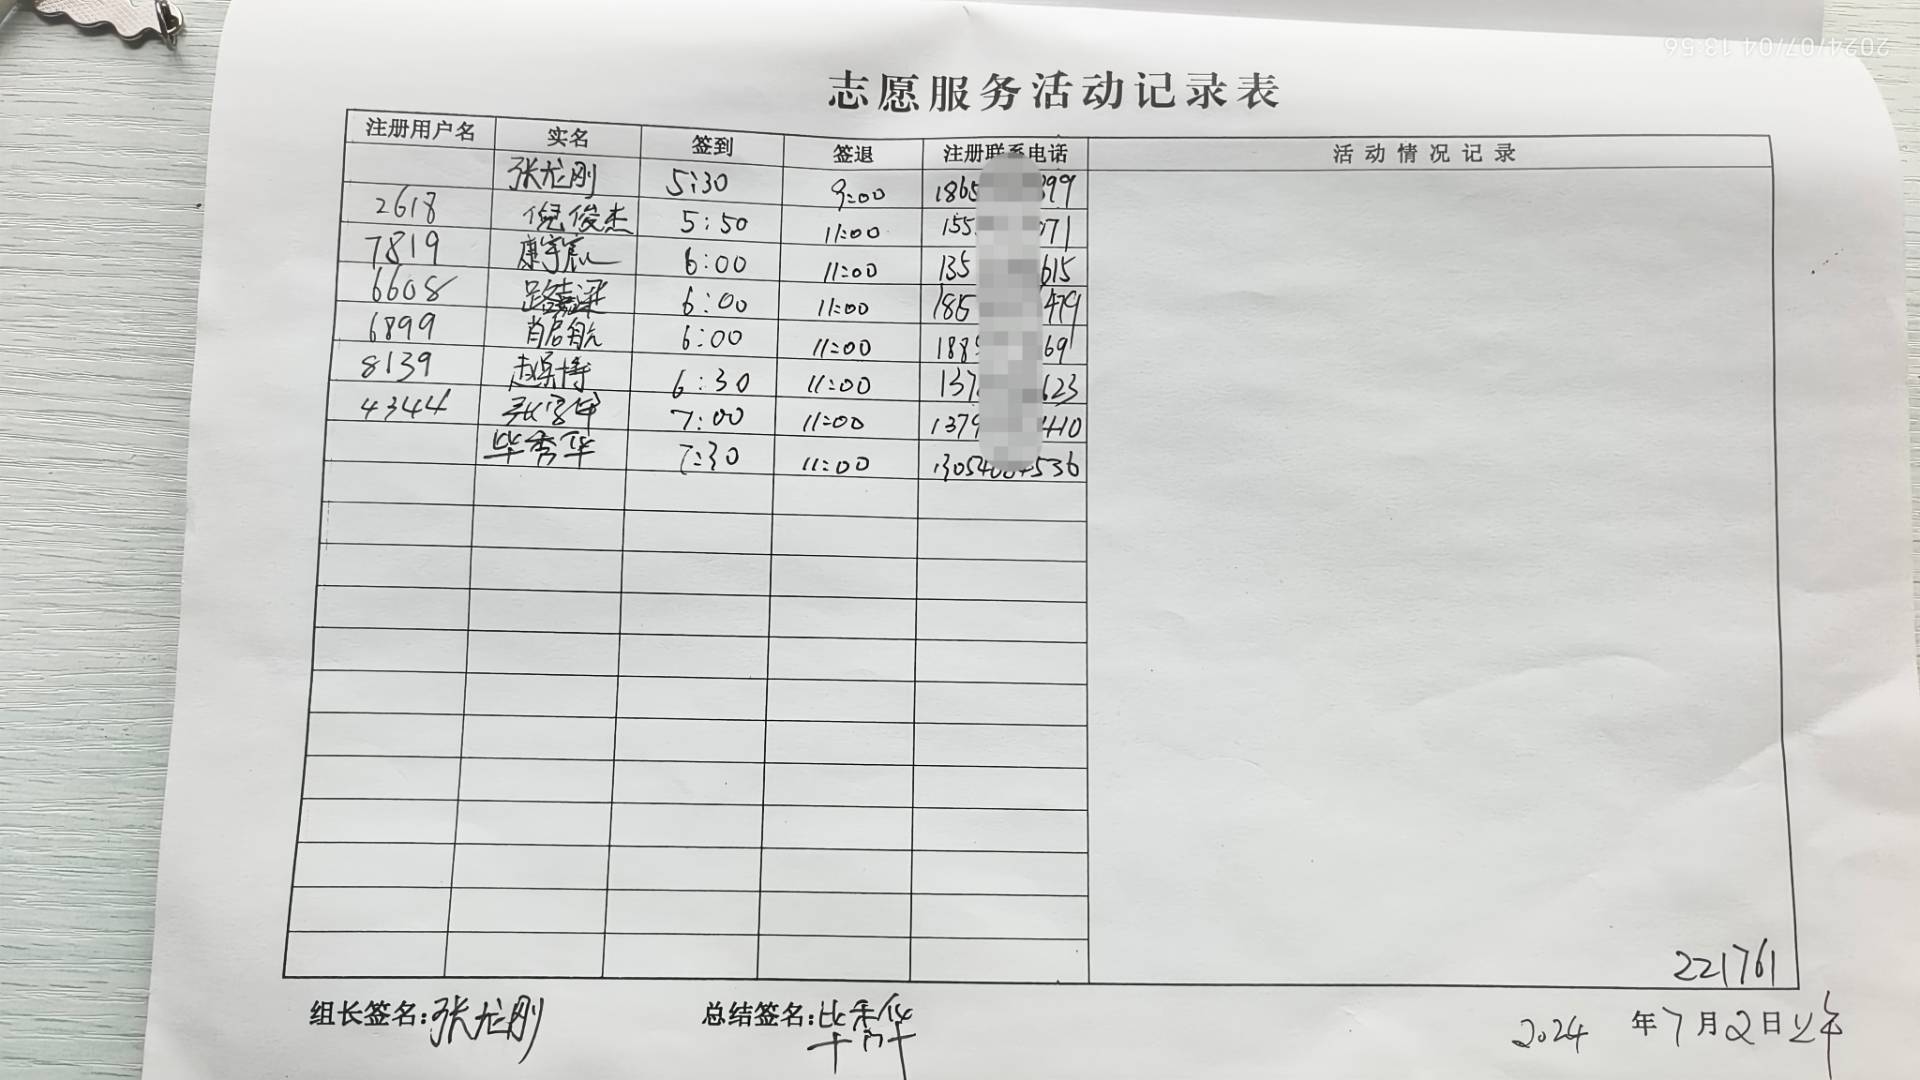 2024/07/04 13:56
志愿服务活动记录表
注册用户名 实名 签到 签退 注册联系电话 活动情况记录
张龙刚 5:30 9:00 1865 399
2618 倪俊杰 5:50 11:00 155 071
7819 康宇宸 6:00 11:00 135 615
6608 路 6:00 11:00 185 479
6899 肖启航 6:00 11:00 188 691
8139 赵保博 6:30 11:00 137 623
4344 7:00 11:00 1379 410
毕秀华 7:30 11:00 1305 536
221761
组长签名:张龙刚 总结签名:毕秀华 2024 年7月2日上午